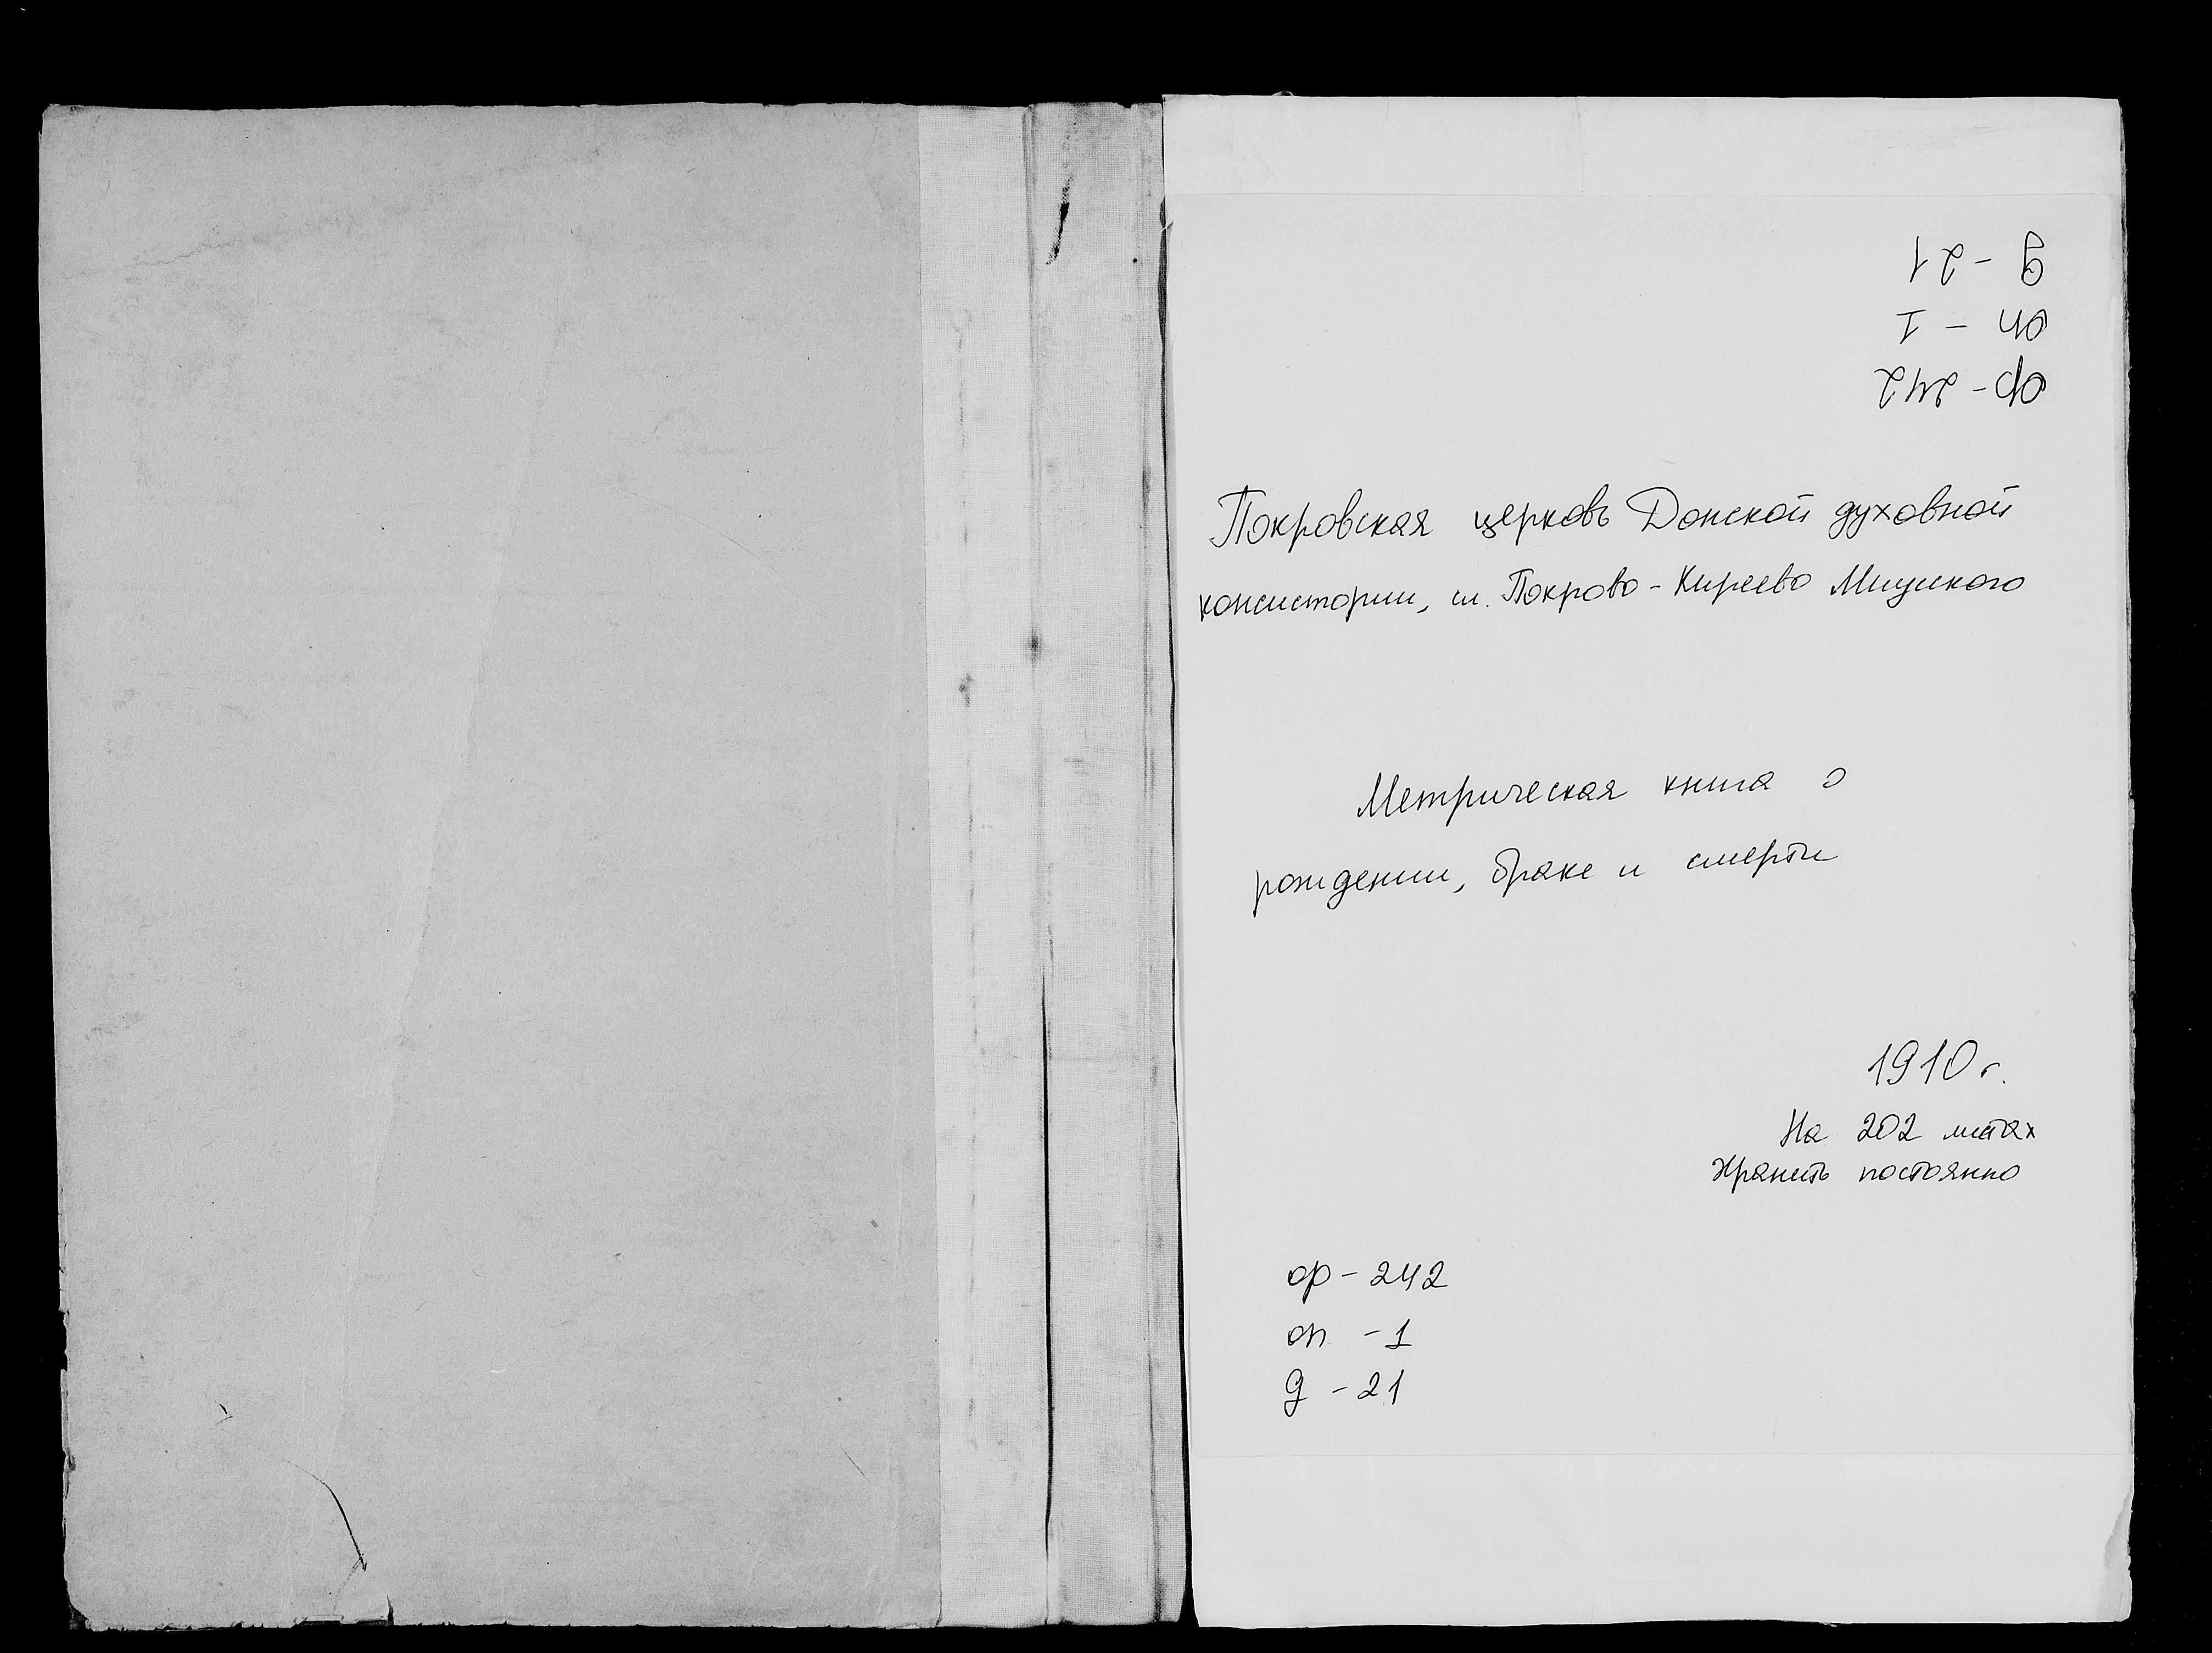 ф - 242
оп - I
д - 21
Покровская церковь Донской духовной
консистории, сл. Покрово - Киреево Миусского
Метрическая книга о
рождении, браке и смерти
1910 г.
На 202 листах
Хранить постоянно
ф - 242
оп - 1
д - 21